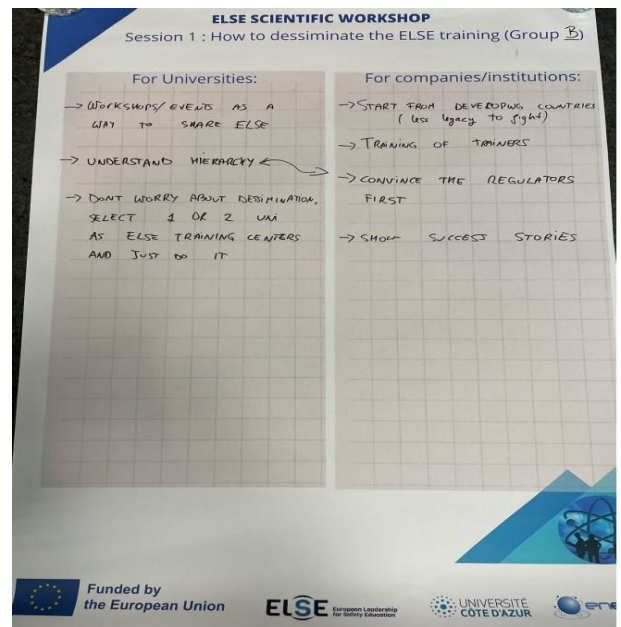 ELSE SCIENTIFIC WORKSHOP
Session 1 : How to dessiminate the ELSE training (Group B)
For Universities:
→ WORKSHOPS/EVENTS AS A
WAY TO SHARE ELSE
→ UNDERSTAND HIERARCHY
→ DONT WORRY ABOUT DESSIMINATION,
SELECT 1 OR 2 UNI
AS ELSE TRAINING CENTERS
AND JUST DO IT
For companies/institutions:
→ START FROM DEVELOPING COUNTRIES
( less legacy to fight)
→ TRAINING OF TRAINERS
→ CONVINCE THE REGULATORS
FIRST
→ SHOW SUCCESS STORIES
Funded by
the European Union
ELSE
European Leadership
for Safety Education
UNIVERSITÉ
CÔTE D'AZUR
ene